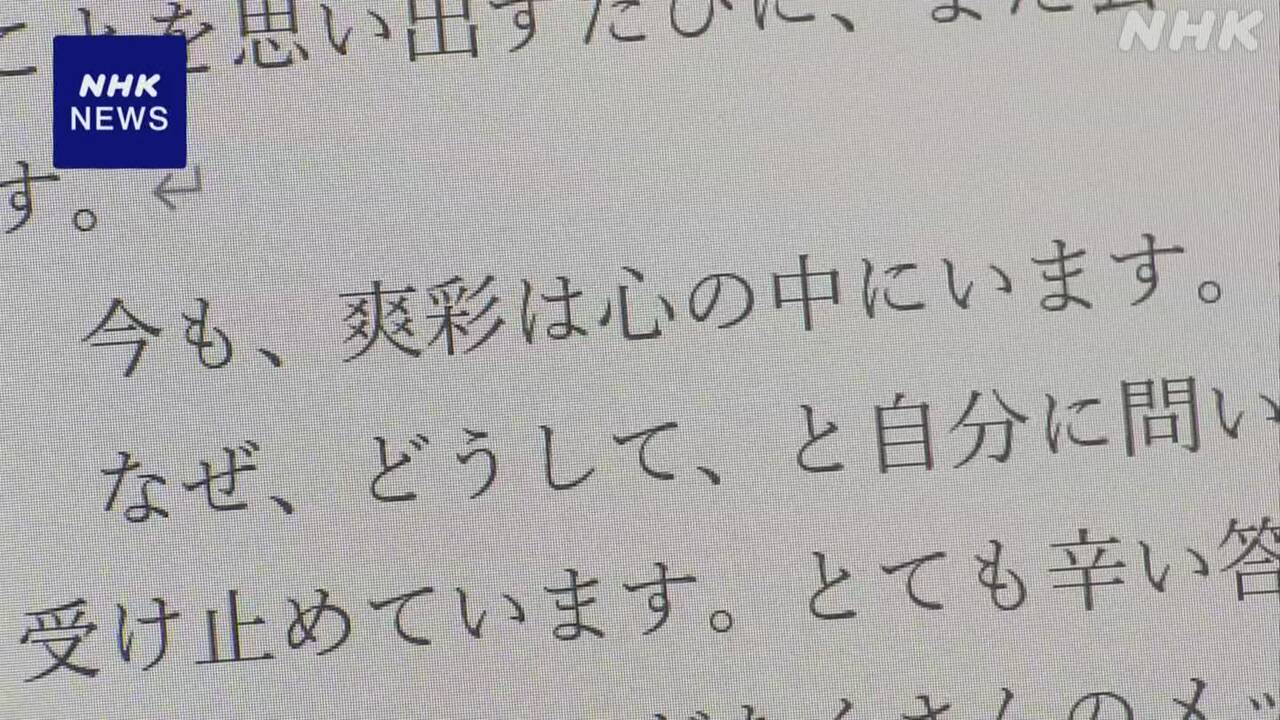 ことを思い出すたびに、また会
NHK
NHK
NEWS
す。↵
今も、爽彩は心の中にいます。
なぜ、どうして、と自分に問い
受け止めています。とても辛い答
たくさんのメッ